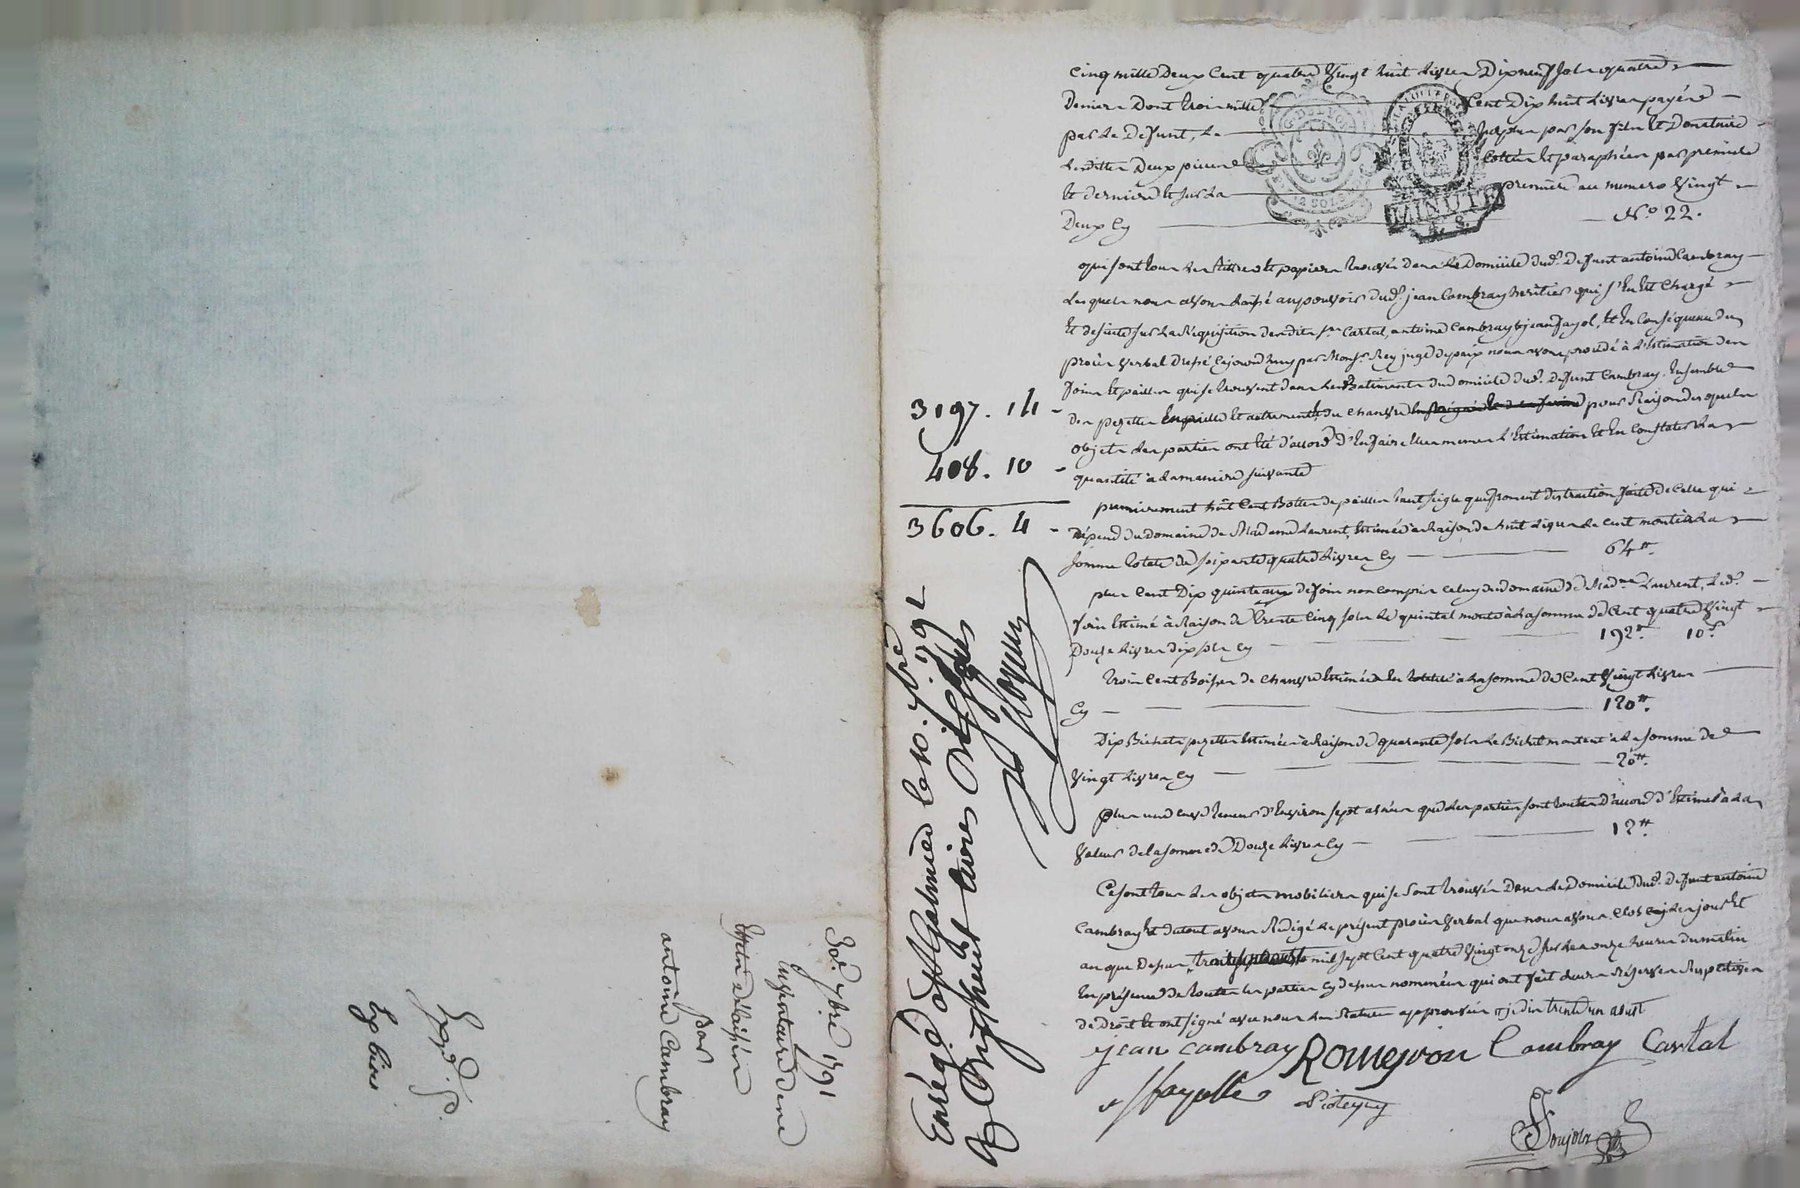 Cinq mille Deux Cent quatre Vingt huit Livres Dixneuf sols quatre
Deniers Dont trois mille Cent Dix huit Livres payées
par Le Defunt, Le par son fils et Donataire
Lesdittes Deux pieces Cottées et paraphées par premiere
et derniere et sur La premiere au numero Vingt
Deux Cy N.º 22.
qui sont tous Les titres et papiers trouvés dans Le Domicile dud.t Defunt antoine Cambray
Lesquels nous avons Laissé au pouvoir dud.t jean Cambray heritier qui s'En Est Chargé
Et de suite sur La Requisition desdits s.rs Cartal, antoine Cambray & jean Fayol, Et En Conséquence du
procès Verbal Dressé Cejourd'huy par Mons.r Rey juge de paix nous avons procédé à L'Estimation des
foins Et pailles qui se trouvent dans Les Batiments du domicile dud.t Defunt Cambray. Ensemble
des pezettes Du chanvre pour Raison desquels
objets Les parties ont été d'accord d'En faire Elles memes L'Estimation Et En Constater La
quantité a La maniere suivante
premierement huit Cent Bottes de pailles tant seigle que froment distraction faite de Celle qui
Dépend du domaine de Madame Laurent, Estimée à Raison de huit Livres Le Cent montés à La
somme totale de soixante quatre Livres Cy 64₶.
plus Cent Dix quintaux de foin non compris celuy du domaine de Mad.me Laurent, Led.t
foin Estimé à Raison de trente Cinq sols Le quintal monte à La somme de Cent quatre Vingt
Douze Livres dix sols Cy 192₶. 10s.
trois Cent Boisses de Chanvre Estimées En totalité à La somme de Cent Vingt Livres
Cy 120₶.
Dix Bichets pezettes Estimées à Raison de quarante sols Le Bichet montant à La somme de
Vingt Livres Cy 20₶.
plus une Cuve tenant d'Environ sept asnées que Les parties sont toutes D'accord d'Estimer à La
Valeur de la somme de Douze Livres Cy 12₶.
Ce sont tous Les objets mobiliers qui se sont trouvés Dans Le Domicile dud.t Defunt antoine
Cambray Et du tout avons Redigé Le présent procès Verbal que nous avons Clos Les jour Et
an que Dessus mil sept Cent quatre Vingt onze sur Les onze heures du matin
En présence de toutes Les parties Cy dessus nommées qui ont fait Leurs Réserves Respectives
de Droit Et ont signé avec nous Les Ratures approuvées & je dis trente un aoust
jean Cambray Romeyron Cambray Cartal
Fayolle
Soujols
G. DE LYON
12 SOLS
MINUTE
4 S.
3197. 14
408. 10
3606. 4
Enrég.é à St Galmier le 10. 7bre 1791
Vingthuit Livres
30. 7bre 1791
Inventaire des
Effets délaissés
par
antoine Cambray
Exp.d. p.